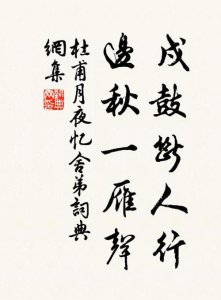 戍鼓斷人行
邊秋一雁聲
杜甫月夜忆舍弟詞典
網集